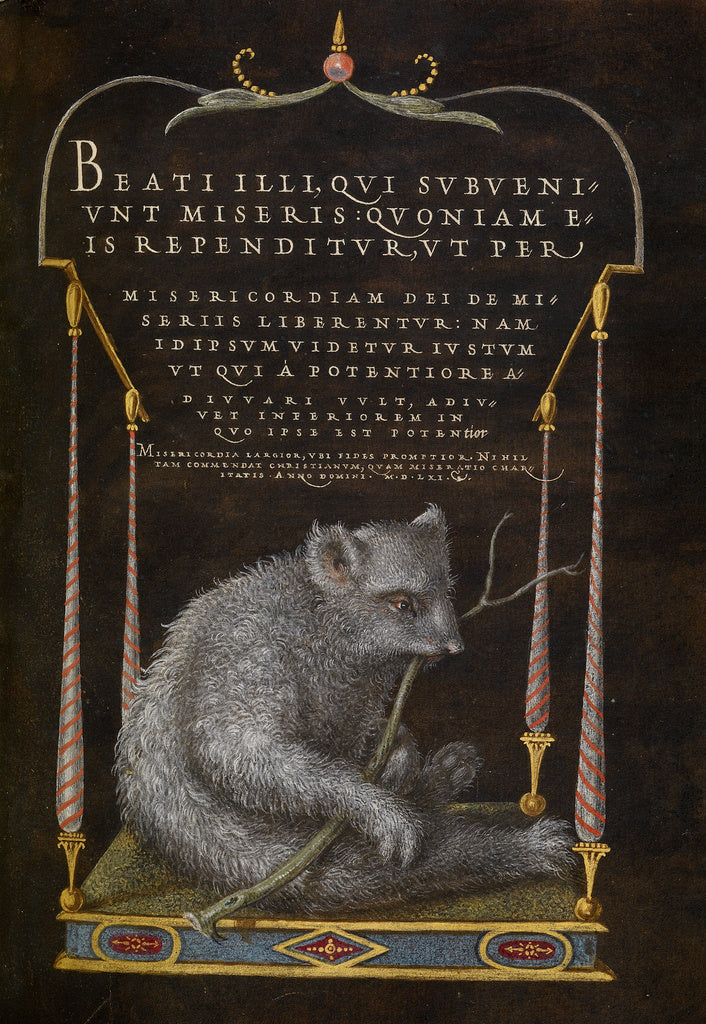 BEATI ILLI, QVI SVBVENI⸗
VNT MISERIS: QVONIAM E⸗
IS REPENDITVR, VT PER
MISERICORDIAM DEI DE MI⸗
SERIIS LIBERENTVR: NAM
IDIPSVM VIDETVR IVSTVM
VT QVI À POTENTIORE A⸗
DIVVARI VVLT, ADIV⸗
VET INFERIOREM IN
QVO IPSE EST POTENtior
MISERICORDIA LARGIOR, VBI FIDES PROMPTIOR. NIHIL
TAM COMMENDAT CHRISTIANVM, QVAM MISERATIO CHAR⸗
ITATIS · ANNO DOMINI · M·D·LXI·